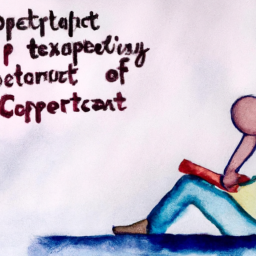 opetrtapct
p texapedivy
oetarurt of
Coppertcant